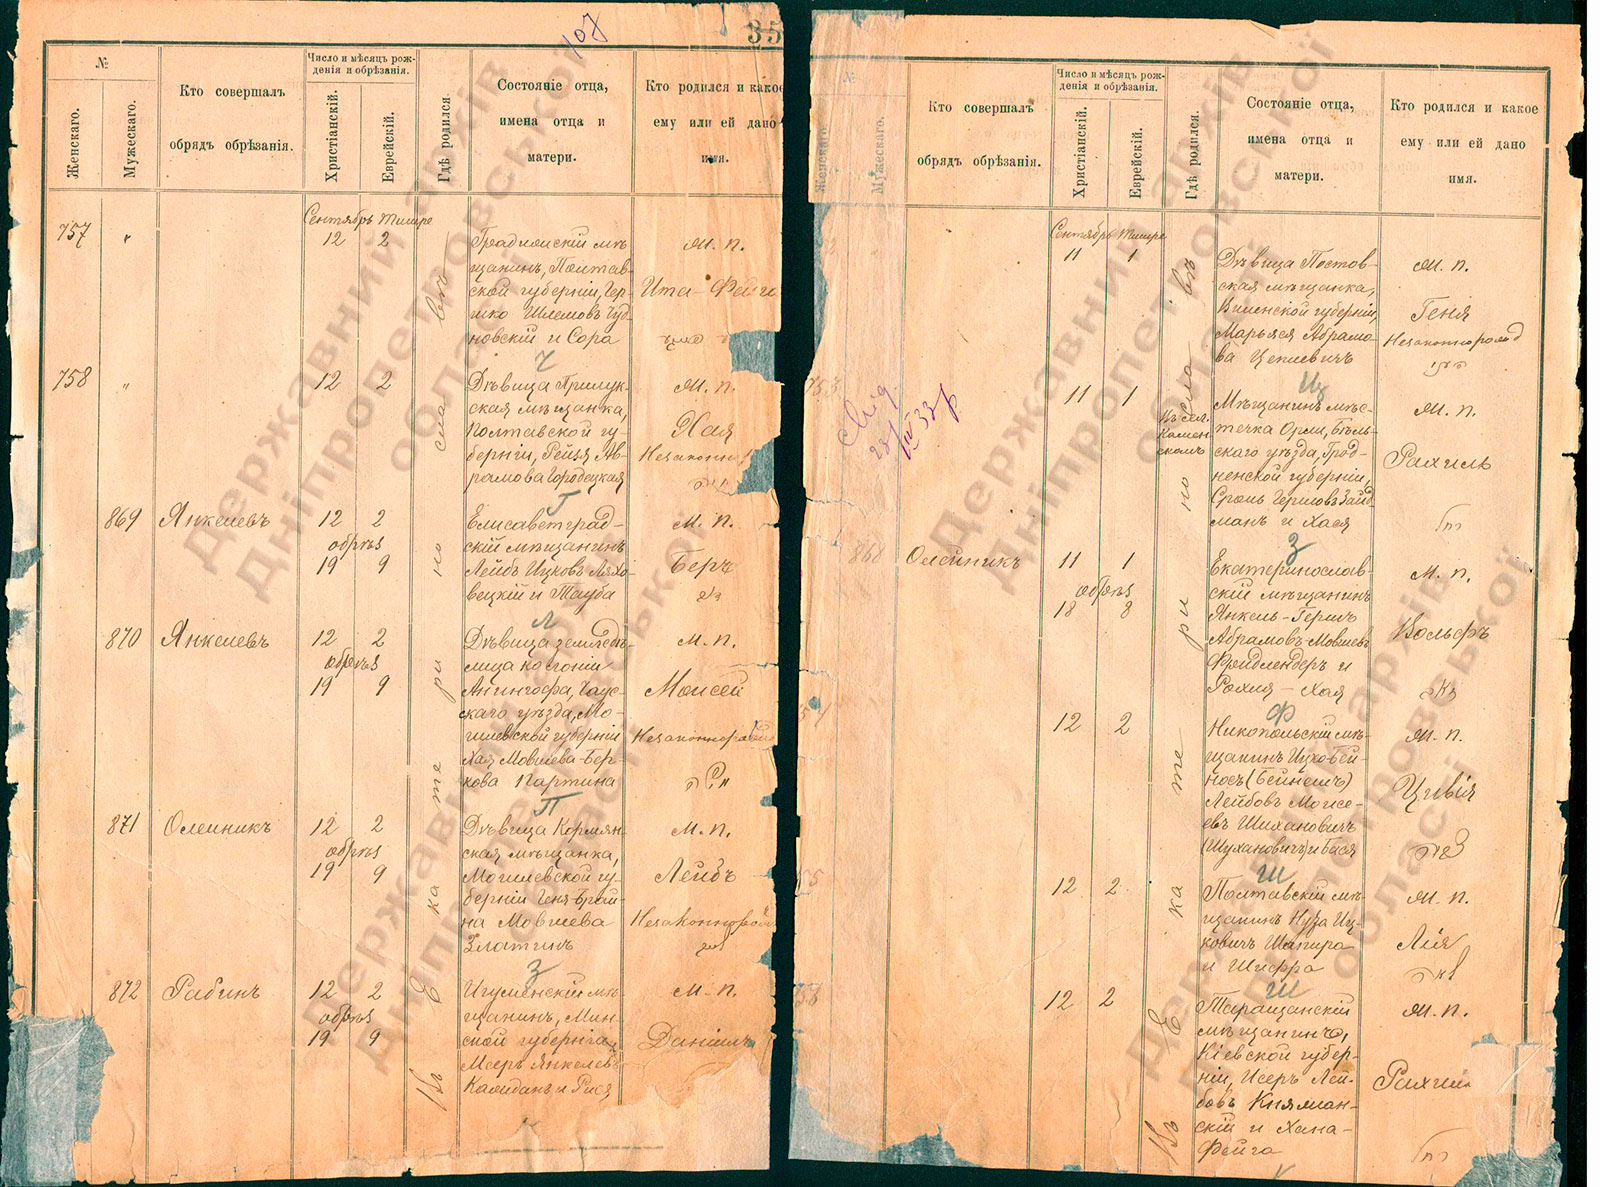 108
35
№
Женскаго.
Мужескаго.
Кто совершалъ
обрядъ обрѣзанія.
Число и мѣсяцъ рож-
денія и обрѣзанія.
Христіанскій.
Еврейскій.
Гдѣ родился.
Состояніе отца,
имена отца и
матери.
Кто родился и какое
ему или ей дано
имя.
Въ Екатеринославѣ
Сентябрь Тишре
757 " 12 2
Градижскій мѣ-
щанинъ, Полтав-
ской губерніи, Гер-
шко Шлемовъ
новскій и Сора
М. п.
Ита-Фейга
Ч
758 " 12 2
Дѣвица Прилук-
ская мѣщанка,
Полтавской гу-
берніи, Рейзя Ав-
рамова Городецкая
М. п.
Хая
Незаконно
Г
869 Янкелевъ 12 2
обрѣз
19 9
Елисаветград-
скій мѣщанинъ
Лейбъ Ицковъ Ляхо-
вецкій и Тауба
М. п.
Беръ
Л
870 Янкелевъ 12 2
обрѣз
19 9
Дѣвица землед
лица колоніи
скаго уѣзда, Мо-
гилевской губерніи
Хая Мовшева-Бер-
кова Партина
М. п.
Моисей
Незаконнорожд
П
871 Олейникъ 12 2
обрѣз
19 9
Дѣвица Кормян-
ская мѣщанка,
Могилевской гу-
берніи Геня-Брай-
на Мовшева
Златинъ
М. п.
Лейбъ
Незаконнорожд
З
872 Рабинъ 12 2
обрѣз
19 9
Игуменскій мѣ-
щанинъ, Мин-
ской губерніи
Янкелевъ
и Рися
М. п.
Даніилъ
Державний архів
Дніпропетровської
області
№
Женскаго.
Мужескаго.
Кто совершалъ
обрядъ обрѣзанія.
Число и мѣсяцъ рож-
денія и обрѣзанія.
Христіанскій.
Еврейскій.
Гдѣ родился.
Состояніе отца,
имена отца и
матери.
Кто родился и какое
ему или ей дано
имя.
Въ Екатеринославѣ
Сентябрь Тишре
11 1
Дѣвица Постов-
ская мѣщанка,
Виленской губерніи,
Марьяся Абрамо-
ва Цепелевичъ
М. п.
Геня
Незаконнорожд
753 11 1
Въ сел.
Камен-
скомъ
Мѣщанинъ мѣс-
течка Орли, Бѣль-
скаго уѣзда, Грод-
ненской губерніи,
Сроль Гершовъ Зайд-
манъ и Хася
М. п.
Рахиль
З
868 Олейникъ 11 1
обрѣз
18 8
Екатеринослав-
скій мѣщанинъ
Янкель-Гершъ
Абрамовъ-Мовшевъ
Фридлендеръ и
Рохля-Хая
М. п.
Вольфъ
Ф
12 2
Никопольскій мѣ-
щанинъ Ицко-Бей-
носъ (Бейнешъ)
Лейбовъ Моисе-
евъ Шихановичъ
(Шухановичъ) и Бася
М. п.
Цивія
Ш
12 2
Полтавскій мѣ-
щанинъ Нуза Иц-
ковичъ Шапиро
и Шифра
М. п.
Лія
Ш
12 2
Таращанскій
мѣщанинъ,
Кіевской губер-
ніи, Исеръ Лей-
бовъ Княжан-
скій и Хана-
Фейга
М. п.
Рахиль
Державний архів
Дніпропетровської
області